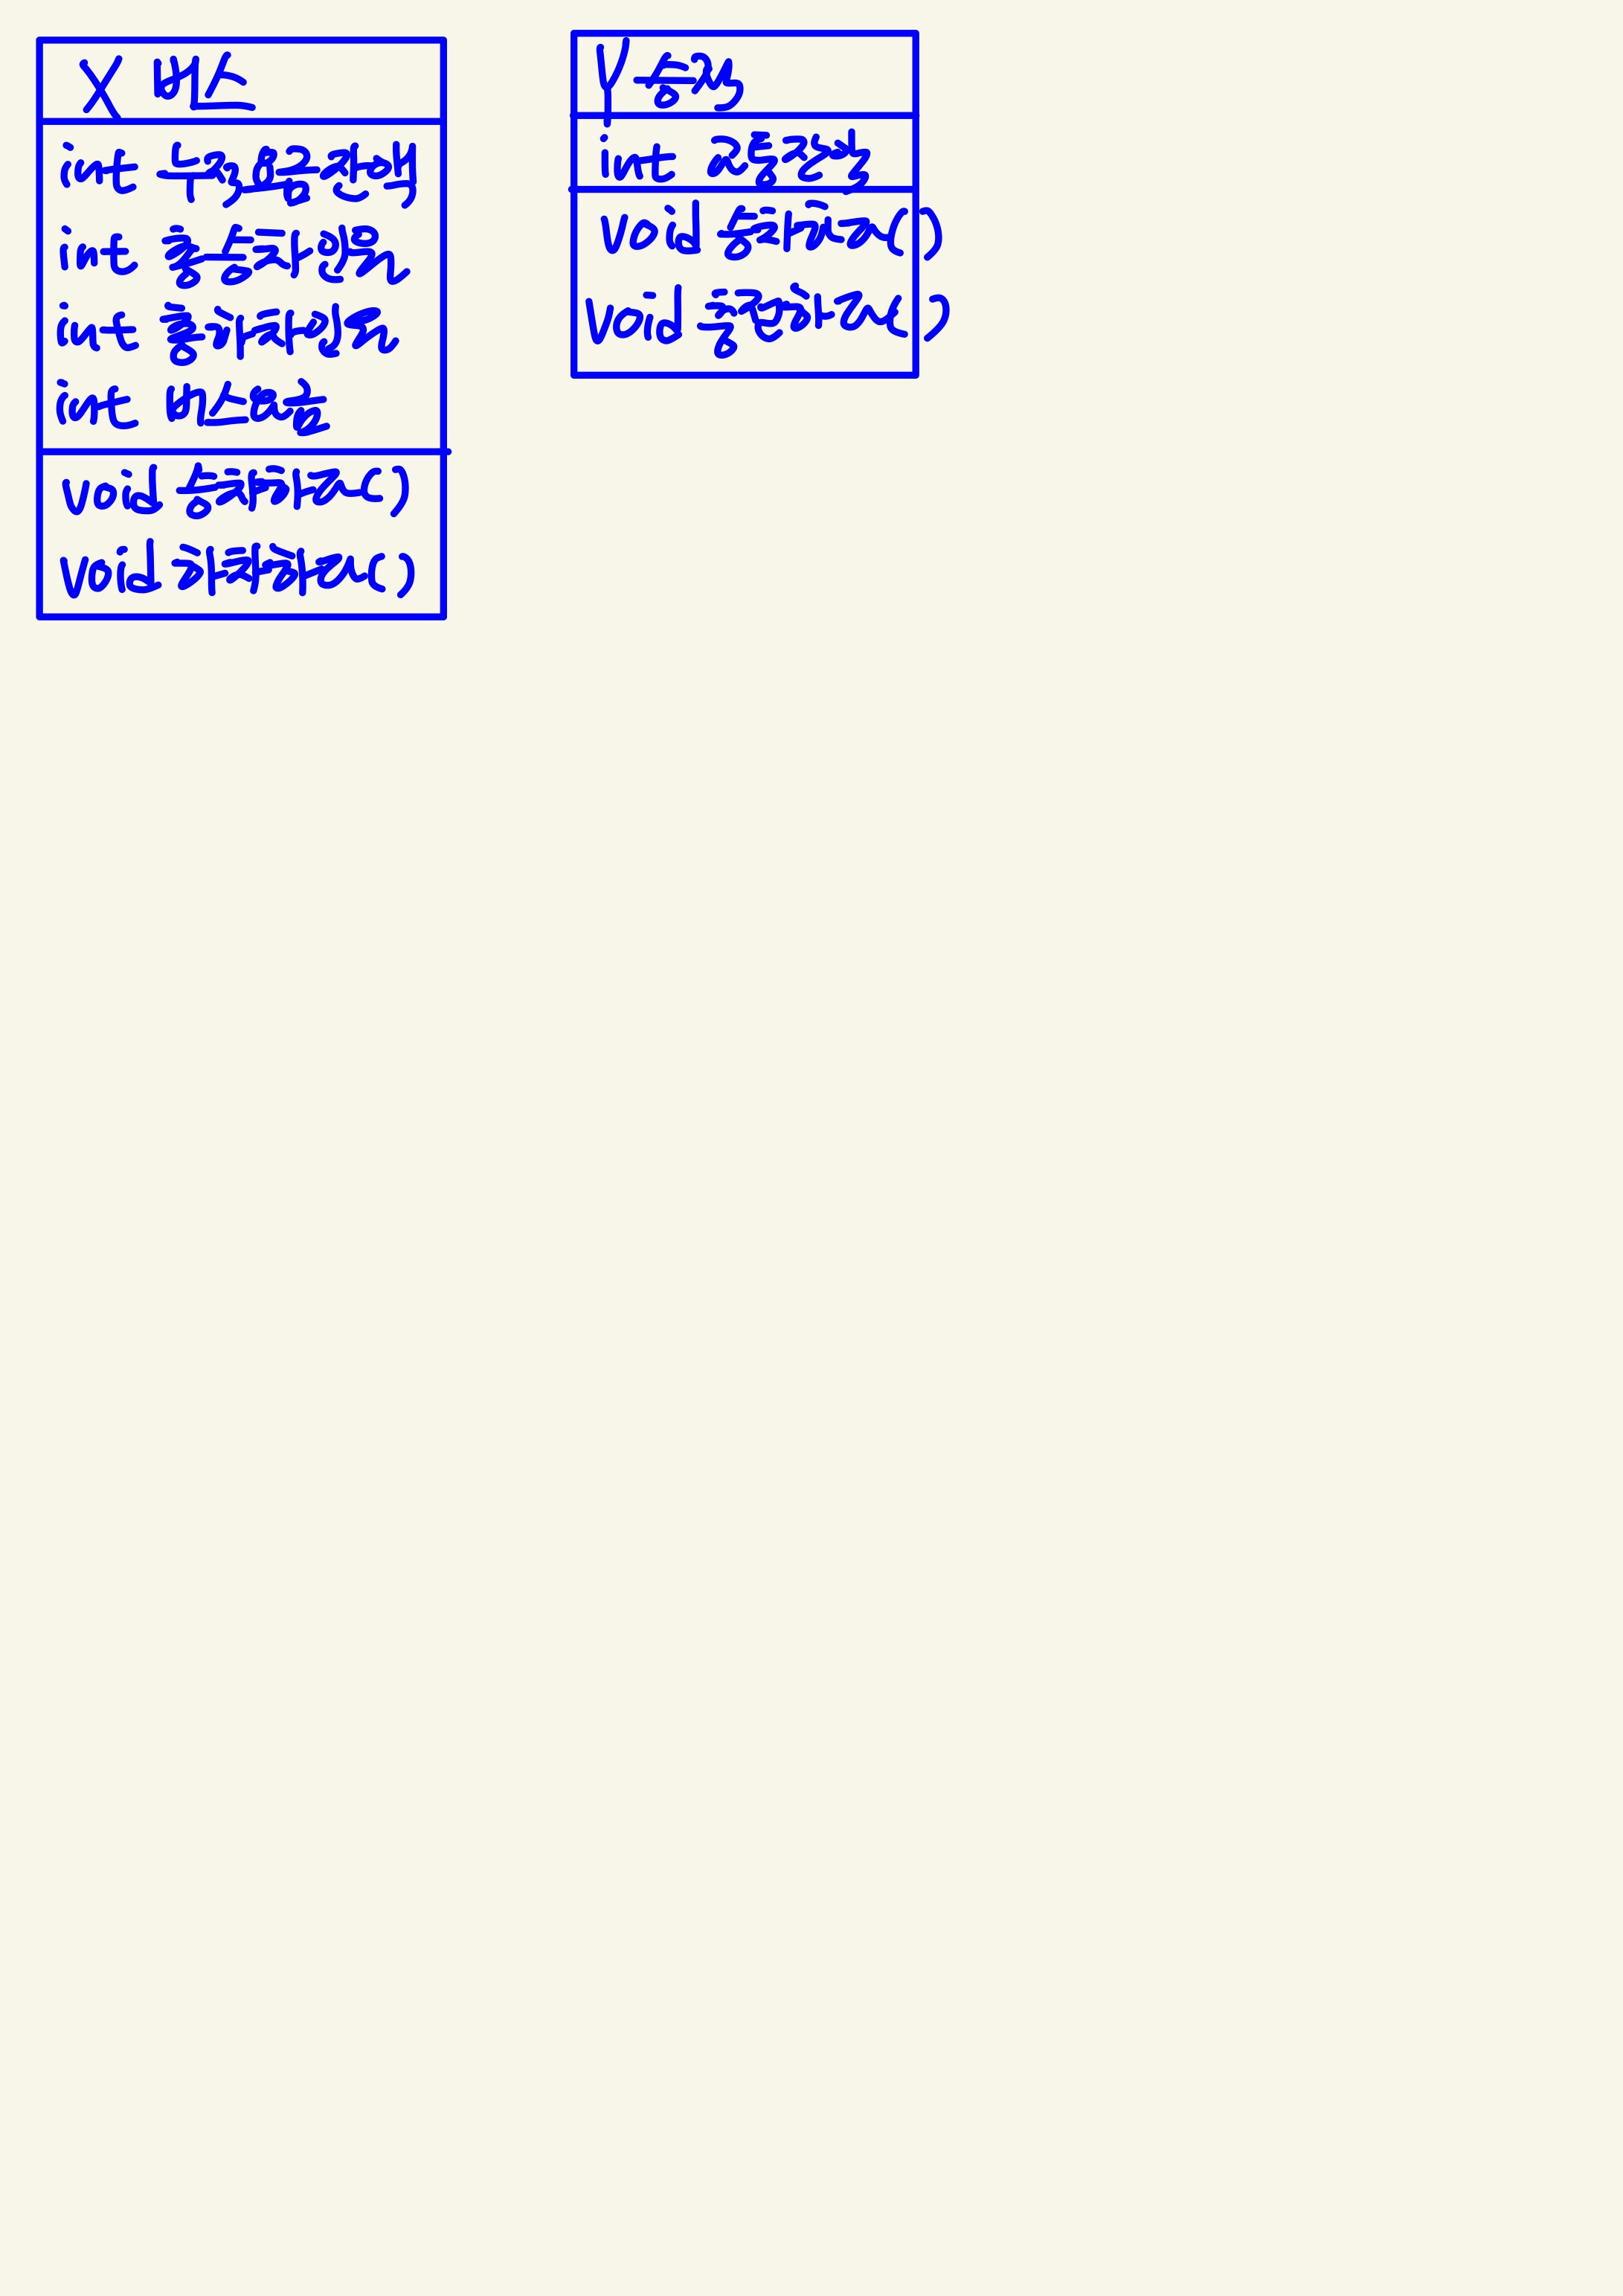 X 버스
int 누적요금잔액
int 총승차인원
int 총하차인원
int 버스요금
void 승차하다()
void 하차하다()
Y 승객
int 교통잔액
void 승하차()
void 충전하다()